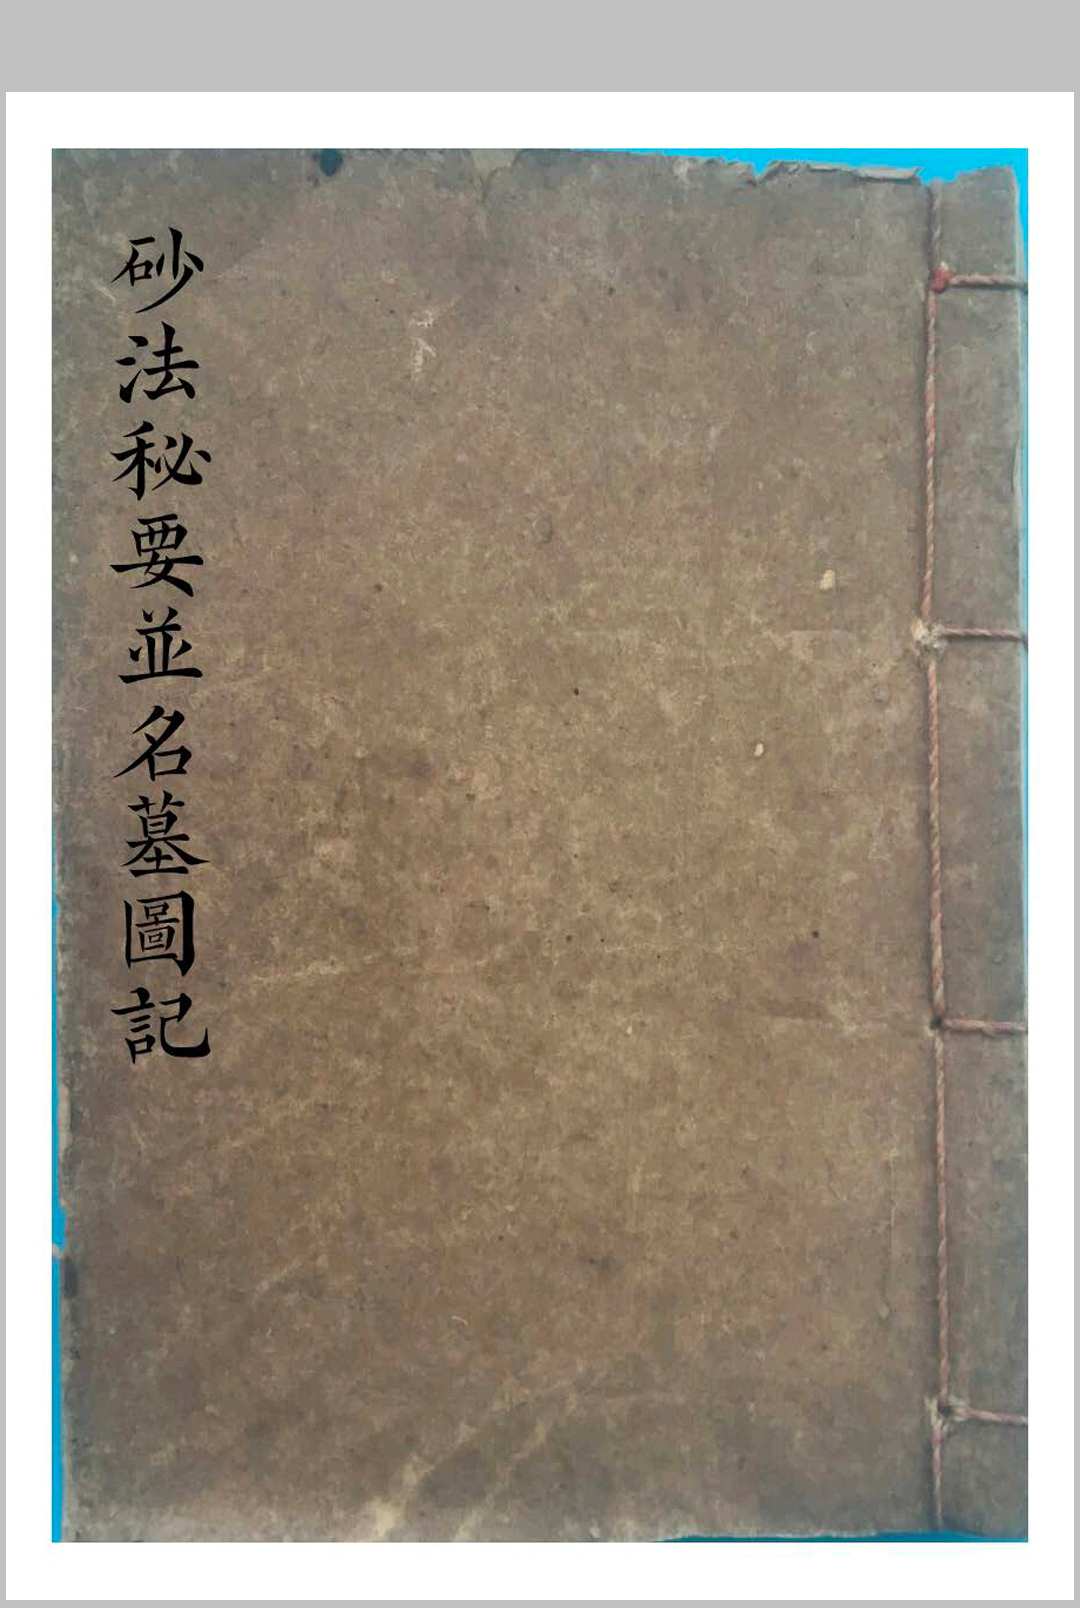 砂法秘要並名墓圖記